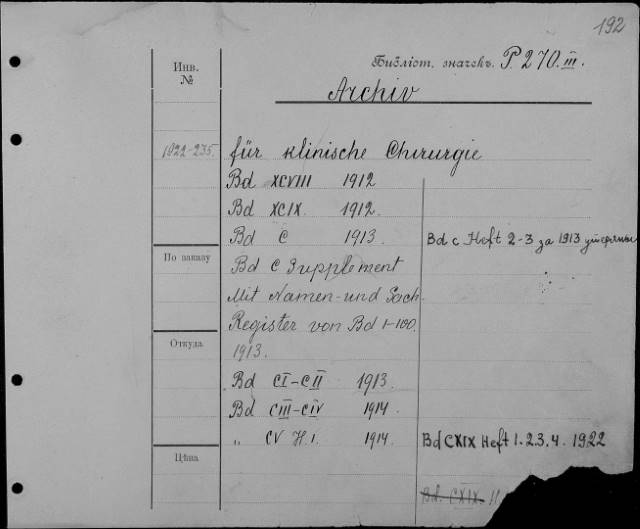 192
Инв.
№
Библіот. значекъ. P. 270. III.
Archiv
1922-235.
für klinische Chirurgie
Bd XCVIII 1912
Bd XCIX. 1912.
Bd C 1913.
Bd C Heft 2-3 за 1913
По заказу
Bd C Supplement
Mit Namen- und Sach.
Register von Bd 1-100.
1913.
Откуда
Bd CI-CII 1913.
Bd CIII-CIV 1914.
„ CV H. 1. 1914.
Bd CXIX Heft 1. 2. 3. 4. 1922
Цѣна
Bd. CXIX.